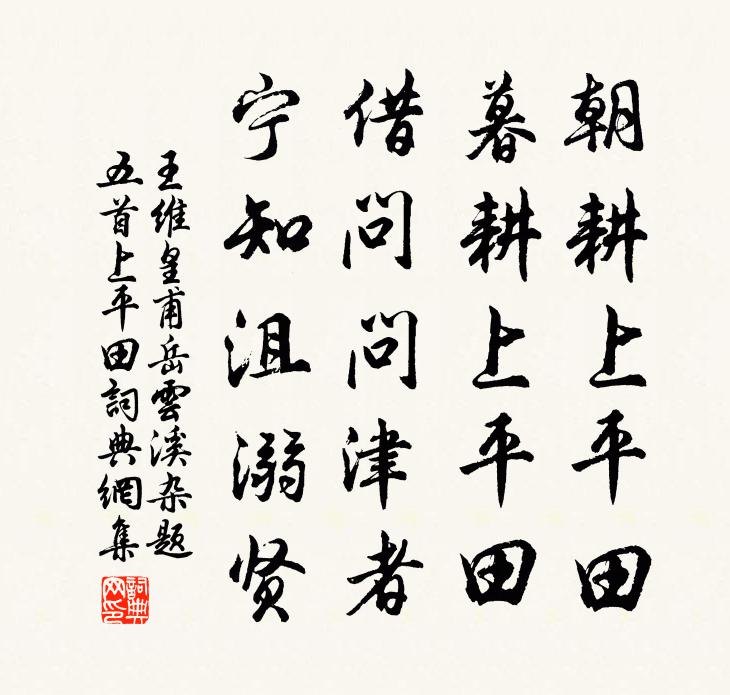 朝耕上平田
暮耕上平田
借问问津者
宁知沮溺贤
王维皇甫岳雲溪杂题
五首上平田詞典網集
詞典網印